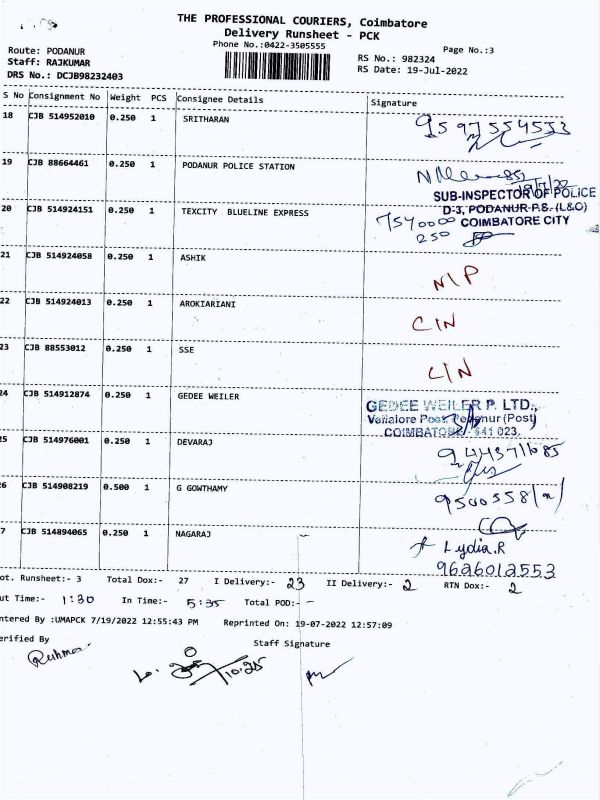 THE PROFESSIONAL COURIERS, Coimbatore
Delivery Runsheet - PCK
Phone No.:0422-3505555
Page No.:3
Route: PODANUR
Staff: RAJKUMAR
DRS No.: DCJB98232403
RS No.: 982324
RS Date: 19-Jul-2022
S No Consignment No Weight PCS Consignee Details Signature
18 CJB 514952010 0.250 1 SRITHARAN
19 CJB 88664461 0.250 1 PODANUR POLICE STATION
19/7/22
SUB-INSPECTOR OF POLICE
D-3, PODANUR P.S. (L&O)
COIMBATORE CITY
20 CJB 514924151 0.250 1 TEXCITY BLUELINE EXPRESS 7540000
250
21 CJB 514924058 0.250 1 ASHIK N/P
22 CJB 514924013 0.250 1 AROKIARIANI C/N
23 CJB 88553012 0.250 1 SSE C/N
24 CJB 514912874 0.250 1 GEDEE WEILER
GEDEE WEILER P. LTD.,
Vellalore Post, Podanur (Post)
COIMBATORE 641 023.
25 CJB 514976001 0.250 1 DEVARAJ
26 CJB 514908219 0.500 1 G GOWTHAMY
7 CJB 514894065 0.250 1 NAGARAJ Lydia.R
9626012553
ot. Runsheet:- 3 Total Dox:- 27 I Delivery:- 23 II Delivery:- 2 RTN Dox:- 2
ut Time:- 1:30 In Time:- 5:35 Total POD:- -
ntered By :UMAPCK 7/19/2022 12:55:43 PM Reprinted On: 19-07-2022 12:57:09
erified By Staff Signature
10.25